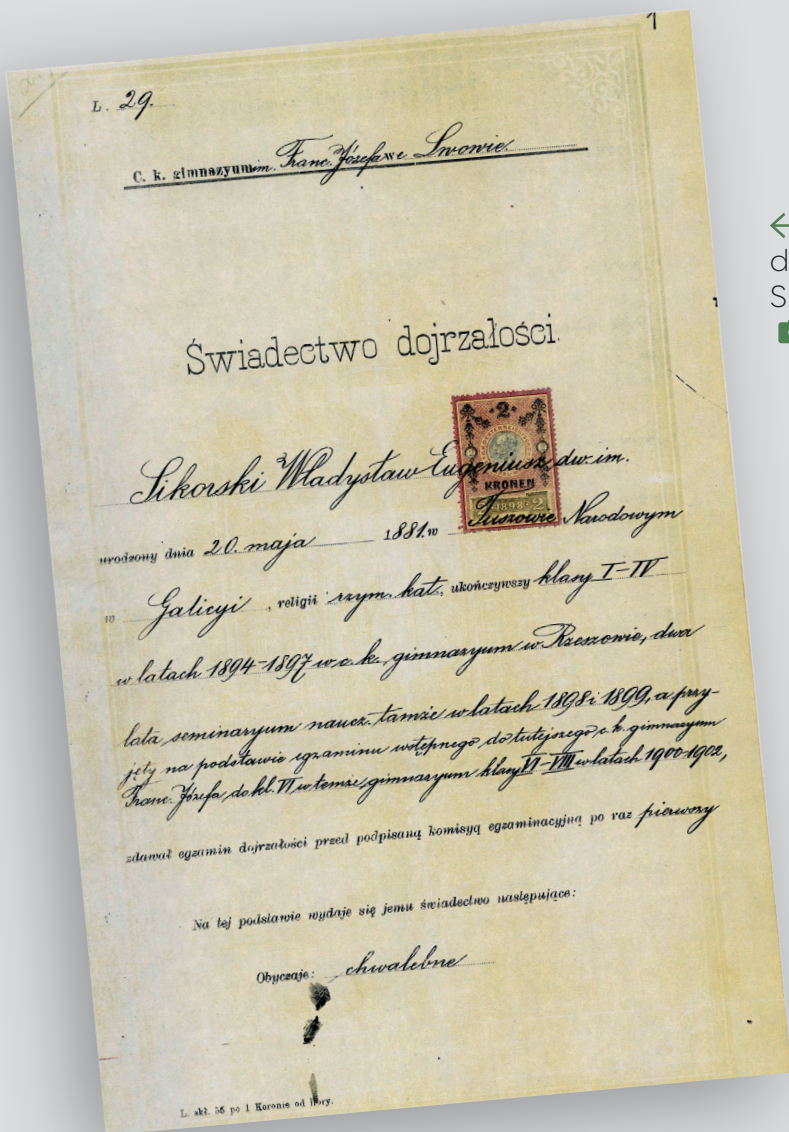 1
L. 29.
C. k. gimnazyum im. Franc. Józefa we Lwowie.
Świadectwo dojrzałości.
2
KRONEN
1898 2
Sikorski Władysław Eugeniusz dw. im.
urodzony dnia 20. maja 1881. w Tuszowie Narodowym
w Galicyi, religii rzym. kat., ukończywszy klasy I-IV
w latach 1894-1897 w c. k. gimnazyum w Rzeszowie, dwa
lata seminaryum naucz. tamże w latach 1898 i 1899, a przy-
jęty na podstawie egzaminu wstępnego do tutejszego c. k. gimnazyum
Franc. Józefa, do kl. VI w temże gimnazyum klasy VI-VIII w latach 1900-1902,
zdawał egzamin dojrzałości przed podpisaną komisyą egzaminacyjną po raz pierwszy
Na tej podstawie wydaje się jemu świadectwo następujące:
Obyczaje: chwalebne
L. skł. 56 po 1 Koronie od
←
d
S